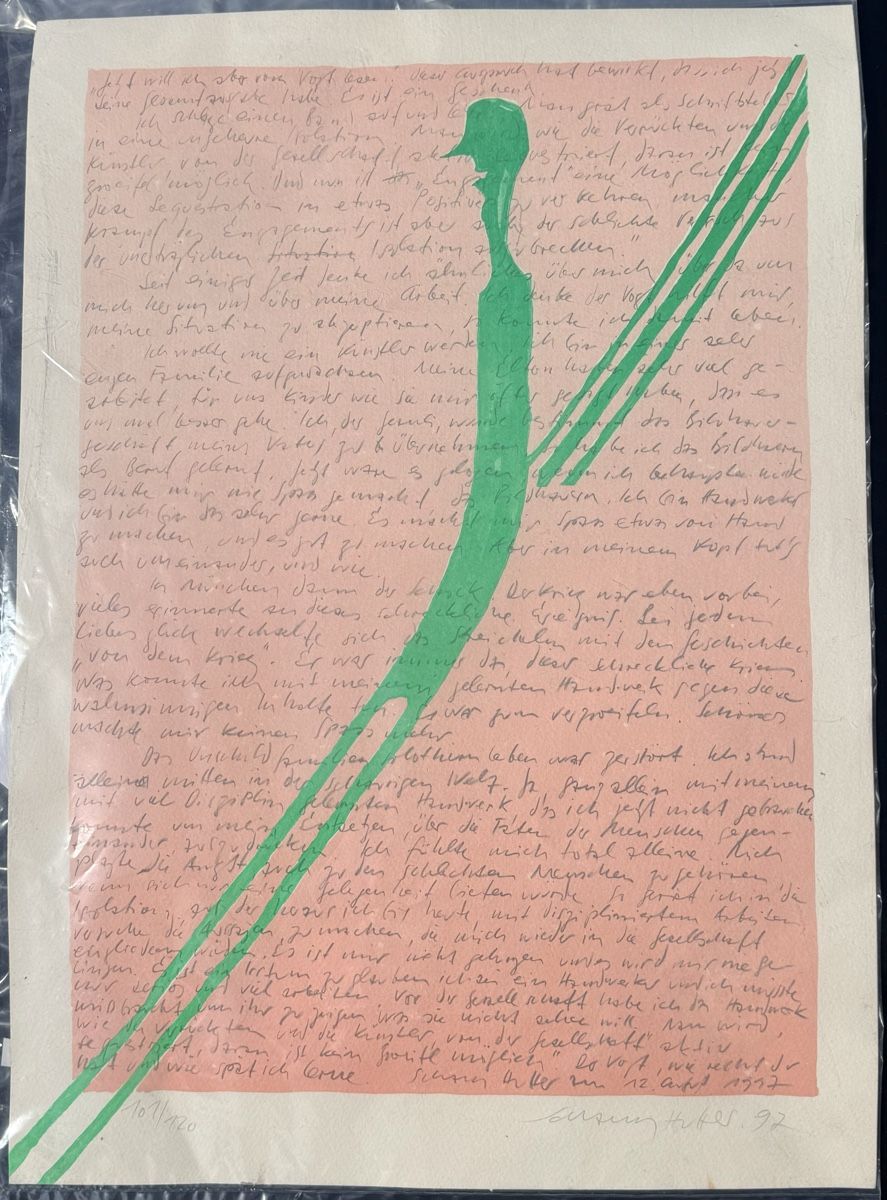 "Jetzt will ich aber vom Vogt lesen!" Dieser Anspruch hat bewirkt, dass ich jetzt
seine Gesamtausgabe habe. Es ist ein Geschenk.
Ich schlage einen Band auf und lese: "Man gerät als Schriftsteller
in eine ungeheure Isolation. Man wird wie die Verrückten und die
Künstler von der Gesellschaft aktiv sequestriert, daran ist kein
Zweifel möglich. Und nun ist "Engagement" eine Möglichkeit
diese Sequestration in etwas Positives zu verkehren, mancher
Krampf des Engagements ist aber auch der schlichte Versuch aus
der unerträglichen Situation Isolation auszubrechen."
Seit einiger Zeit denke ich ähnliches über mich, über das um
mich herum und über meine Arbeit. Ich denke der Vogt hilft mir,
meine Situation zu akzeptieren, so könnte ich damit leben.
Ich wollte nie ein Künstler werden. Ich bin in einer sehr
engen Familie aufgewachsen. Meine Eltern haben sehr viel ge-
arbeitet, für uns Kinder wie sie mir öfter gesagt haben, dass es
uns mal besser gehe. Ich, der wurde bestimmt das Bildhauer-
geschäft meines Vaters zu übernehmen. So habe ich das Bildhauern
als Beruf gelernt. Jetzt wäre es gelogen wenn ich behaupten würde
es hätte mir nie Spass gemacht das Bildhauern. Ich bin Handwerker
und ich bin das sehr gerne. Es macht mir Spass etwas von Hand
zu machen, und es gut zu machen. Aber in meinem Kopf tut's
auch umeinander, und wie.
In München dann der Schock. Der Krieg war eben vorbei,
vieles erinnerte an dieses schreckliche Ereignis. Bei jedem
Liebesglück wechselte sich das Streicheln mit den Geschichten
"von dem Krieg". Er war immer da, dieser schreckliche Krieg.
Was konnte ich mit meinem gelernten Handwerk gegen diese
wahnsinnigen Inhalte tun. Es war zum verzweifeln. Schönes
machte mir keinen Spass mehr.
Das Unschuldfamilienidiothemleben war zerstört. Ich stand
alleine mitten in der schaurigen Welt. Ja, ganz allein mit meinem
mit viel Disziplin gelernten Handwerk, das ich jetzt nicht gebrauchen
konnte um mein Entsetzen über die Taten der Menschen gegen-
einander, auszudrücken. Ich fühlte mich total alleine. Mich
plagte die Angst auch zu den schlechten Menschen zu gehören,
wenn sich nur eine Gelegenheit bieten würde. So geriet ich in die
Isolation, aus der heraus ich bis heute, mit diszipliniertem Arbeiten
versuche die Aussagen zu machen, die mich wieder in die Gesellschaft
eingliedern würden. Es ist mir nicht gelungen und es wird mir nie ge-
lingen. Es ist ein Irrtum zu glauben ich sei ein Handwerker und ich müsste
nur seriös und viel arbeiten. Vor der Gesellschaft habe ich das Handwerk
missbraucht um ihr zu zeigen was sie nicht sehen will. "Man wird,
wie die Verrückten und die Künstler von "der Gesellschaft" aktiv
sequestriert, daran ist kein Zweifel möglich." Da Vogt, wie recht du
hast und wie spät ich lerne. Schang Hutter am 12. August 1997
101/120
Schang Hutter. 97